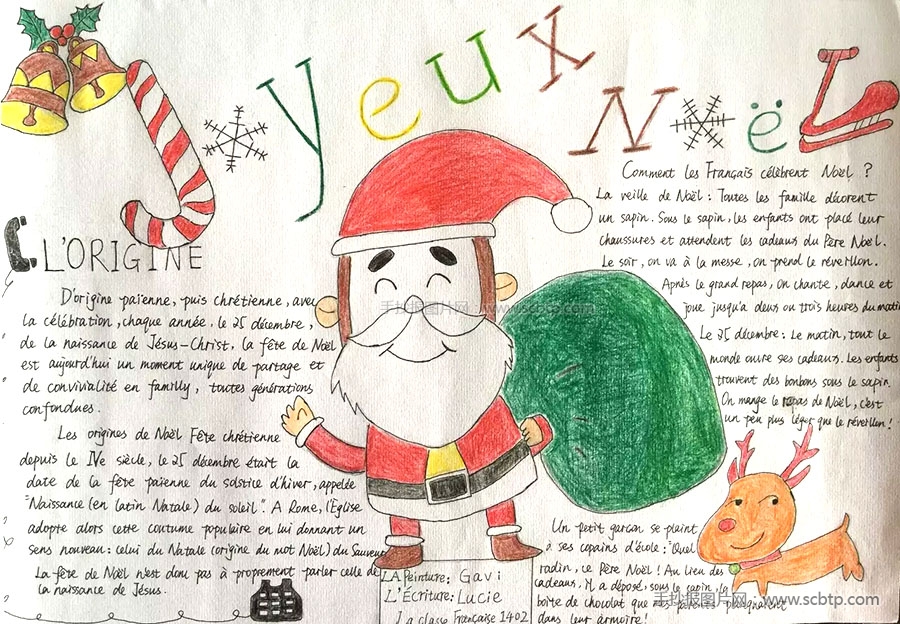 Joyeux Noël
L'ORIGINE
D'origine païenne, puis chrétienne, avec
la célébration, chaque année, le 25 décembre,
de la naissance de Jésus-Christ, la fête de Noël
est aujourd'hui un moment unique de partage et
de convivialité en familly, toutes générations
confondues.
Les origines de Noël Fête chrétienne
depuis le IVe siècle, le 25 décembre était la
date de la fête païenne du solstice d'hiver, appelée
"Naissance (en latin Natale) du soleil". A Rome, l'Eglise
adopte alors cette coutume populaire en lui donnant un
sens nouveau: celui du Natale (origine du mot Noël) du Sauveur
La fête de Noël n'est donc pas à proprement parler celle de
la naissance de Jésus.
Comment les Français célèbrent Noël ?
La veille de Noël: Toutes les famille décorent
un sapin. Sous le sapin, les enfants ont placé leur
chaussures et attendent les cadeaux du Père Noël.
Le soir, on va à la messe, on prend le réveillon.
Après le grand repas, on chante, dance et
joue jusqu'a deux ou trois heures du matin
Le 25 décembre: Le matin, tout le
monde ouvre ses cadeaux. Les enfants
trouvent des bonbons sous le sapin.
On mange le repas de Noël, c'est
un peu plus léger que le réveillon!
Un petit garçon se plaint
à ses copains d'école: "Quel
radin, ce Père Noël! Au lieu des
cadeaux, il a déposé, sous le sapin, la
boîte de chocolat que mes parents
dans leur armoire!
LA Peinture: Gavi
L'Écriture: Lucie
La classe Française 1402
手抄报图片网 www.scbtp.com
手抄报图片网 www.scbtp.com